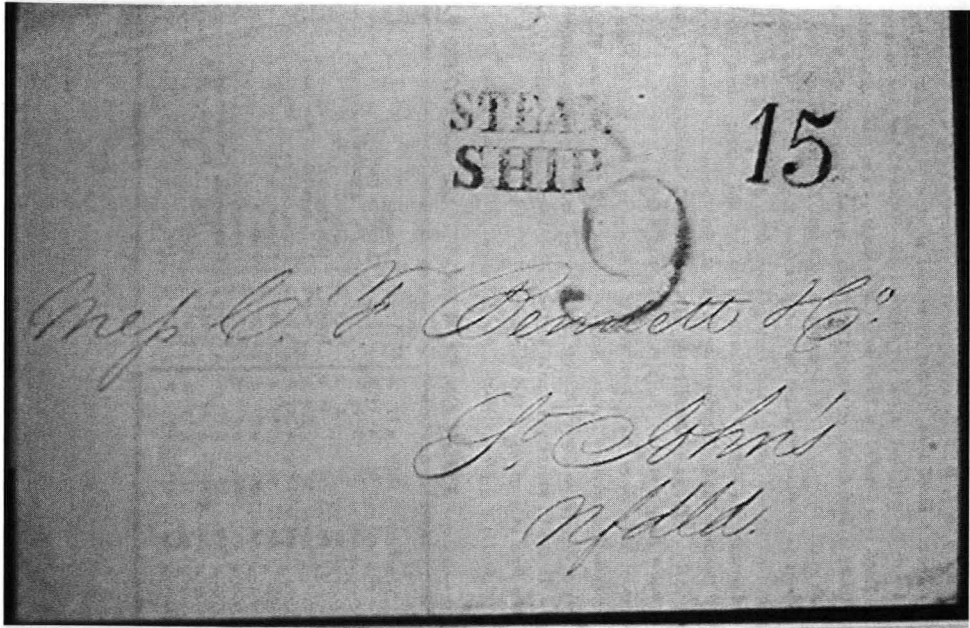 STEAM
SHIP
15
9
Mess C. F. Bennett & Co.
St. John's
Nfdld.